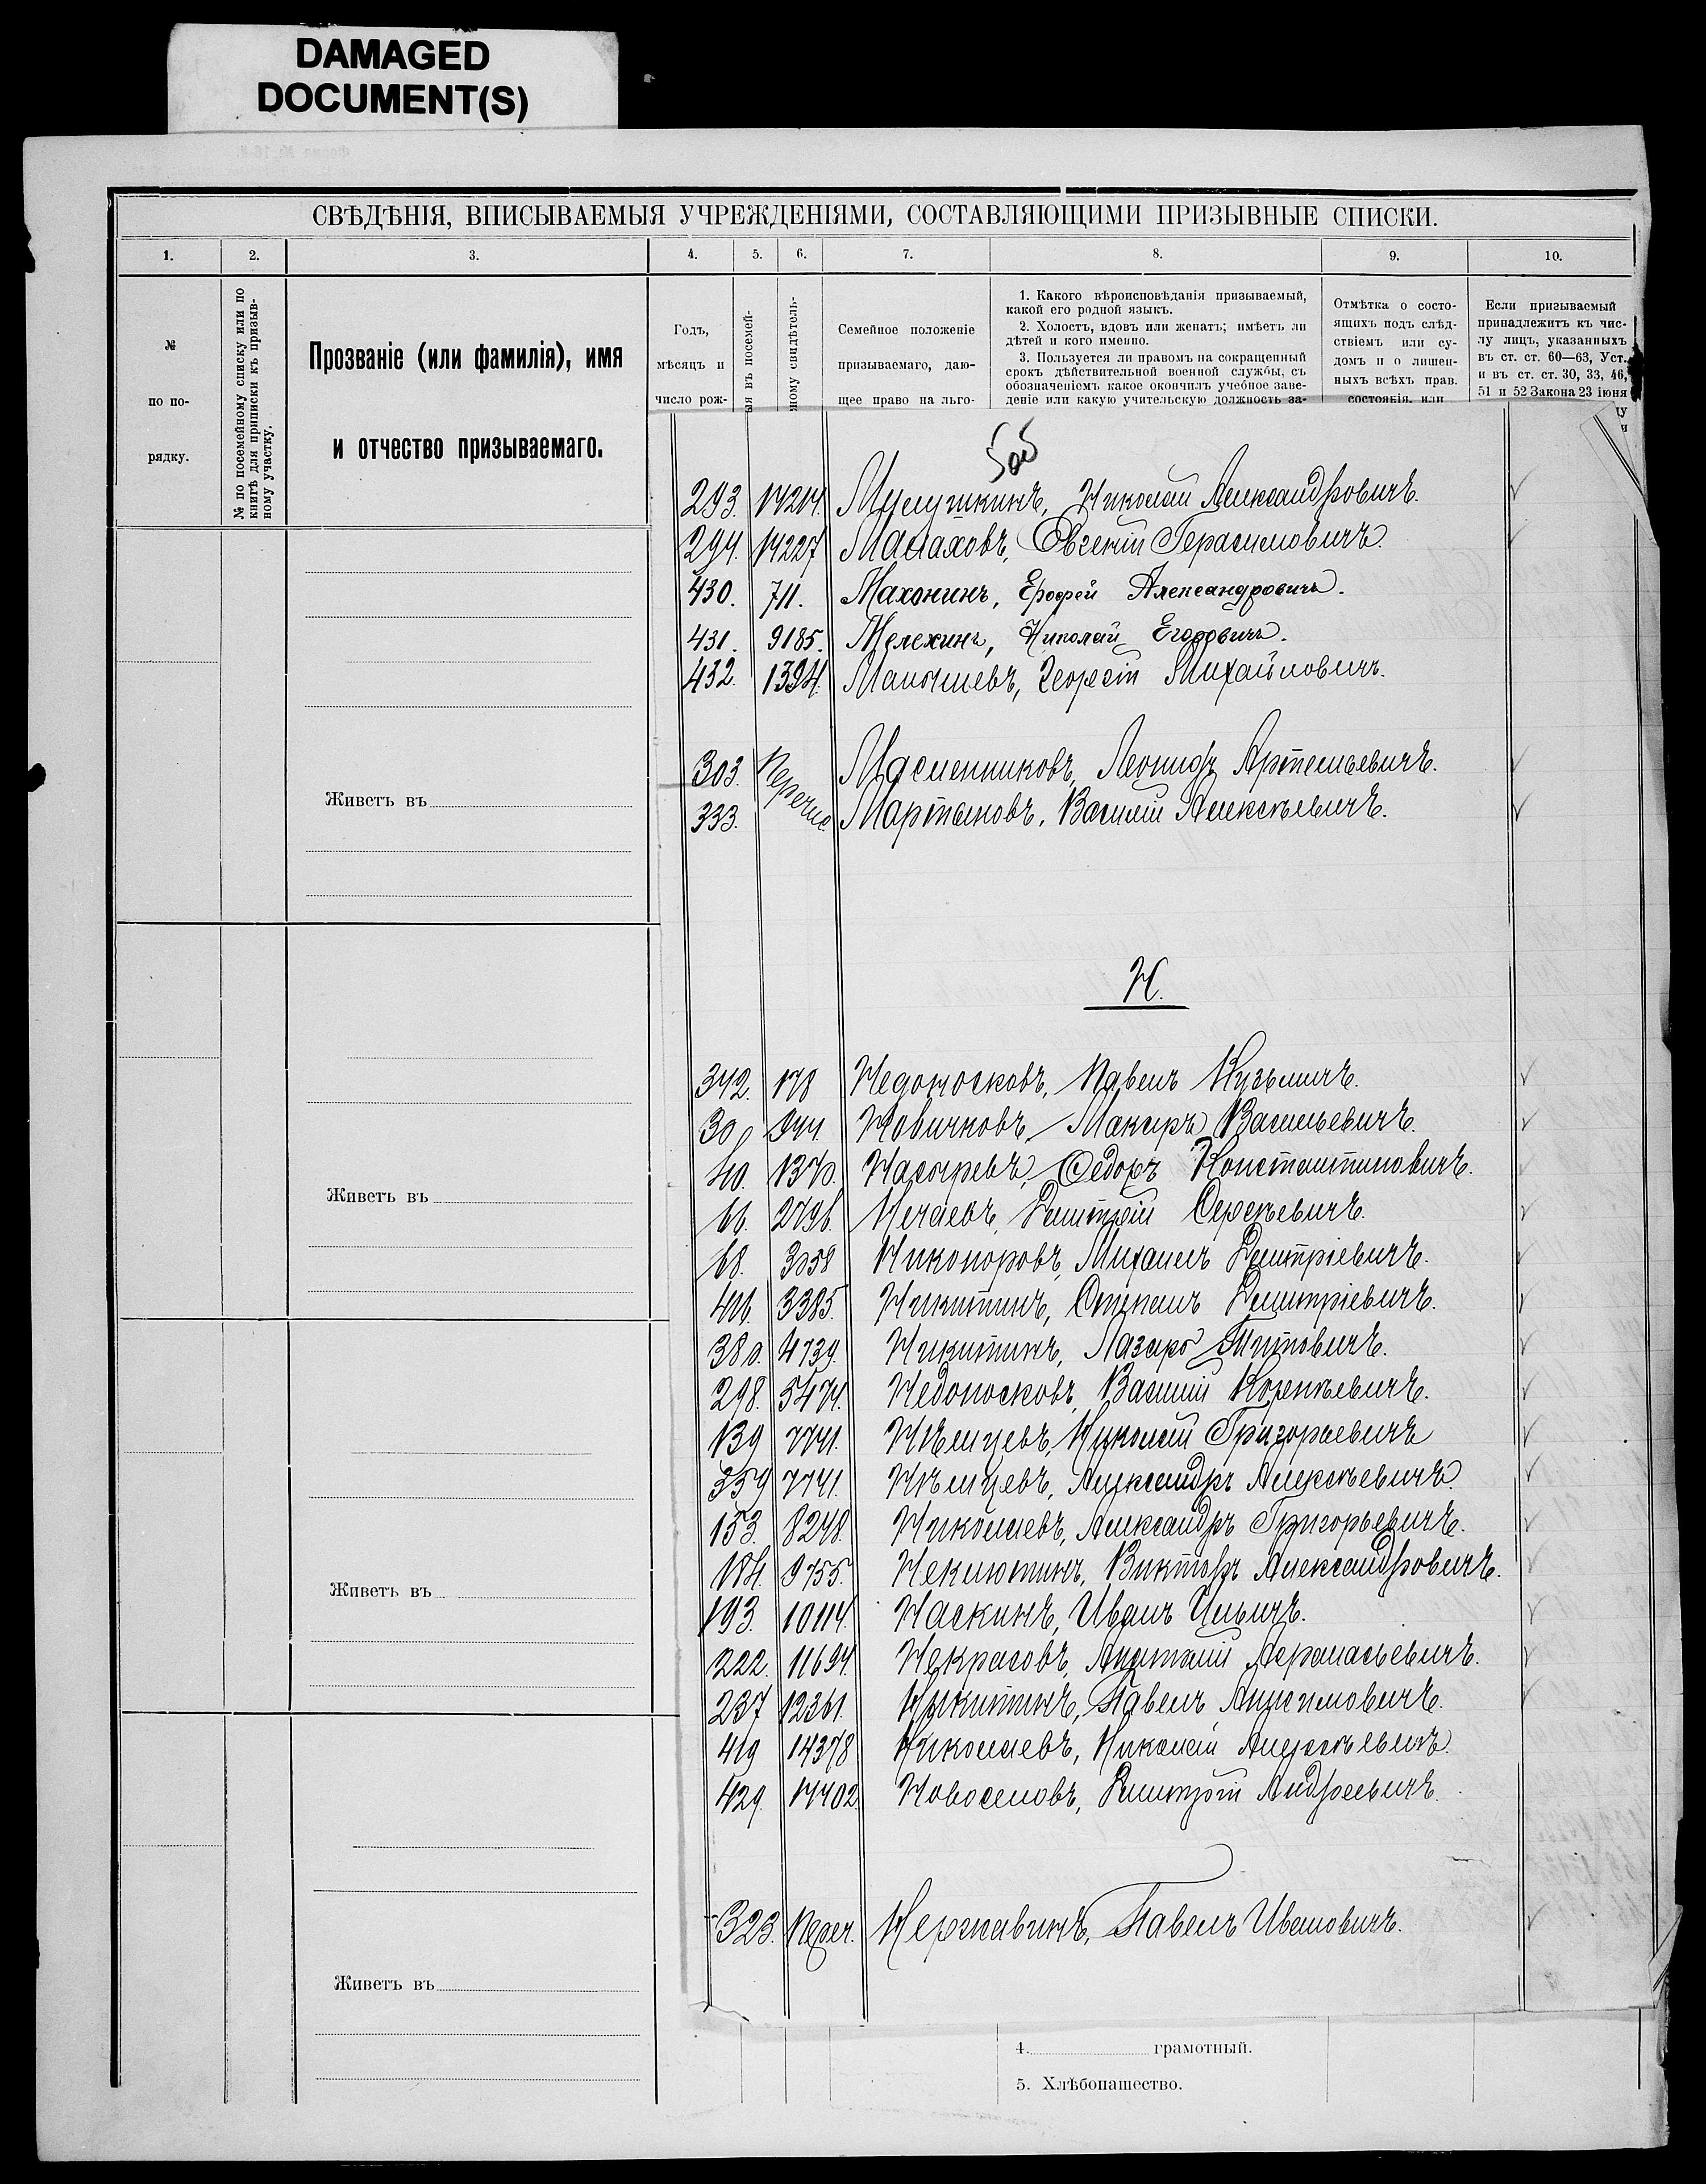 DAMAGED
DOCUMENT(S)
СВѢДѢНІЯ, ВПИСЫВАЕМЫЯ УЧРЕЖДЕНІЯМИ, СОСТАВЛЯЮЩИМИ ПРИЗЫВНЫЕ СПИСКИ.
1. 2. 3. 4. 5. 6. 7. 8. 9. 10.
№
по по-
рядку.
№ по посемейному списку или по
книгѣ для приписки къ призыв-
ному участку.
Прозваніе (или фамилія), имя
и отчество призываемаго.
Годъ,
мѣсяцъ и
число рож-
ія въ посемей-
ному свидѣтель-
Семейное положеніе
призываемаго, даю-
щее право на льго-
1. Какого вѣроисповѣданія призываемый,
какой его родной языкъ.
2. Холостъ, вдовъ или женатъ; имѣетъ ли
дѣтей и кого именно.
3. Пользуется ли правомъ на сокращенный
срокъ дѣйствительной военной службы, съ
обозначеніемъ какое окончилъ учебное заве-
деніе или какую учительскую должность за-
Отмѣтка о состо-
ящихъ подъ слѣд-
ствіемъ или су-
домъ и о лишен-
ныхъ всѣхъ прав.
состоянія, или
Если призываемый
принадлежитъ къ чис-
лу лицъ, указанныхъ
въ ст. ст. 60—63, Уст.
и въ ст. ст. 30, 33, 46,
51 и 52 Закона 23 іюня
505
293. 14214. Николай Александровичъ.
294. 14227 Малаховъ, Евгеній Герасимовичъ.
430. 711. Махонинъ, Ерофей Александровичъ.
431. 9185. Мелехинъ, Николай Егоровичъ.
432. 1394. Георгій Михайловичъ.
303. Перечис. Масленниковъ, Леонидъ Артемьевичъ.
333. Мартыновъ, Василій Алексѣевичъ.
Н.
342. 178 Недоносковъ, Павелъ Кузьмичъ.
30. 944. Новичковъ, Макаръ Васильевичъ.
40. 1370. Насыревъ, Федоръ Константиновичъ.
66. 2796. Нечаевъ, Дмитрій Сергѣевичъ.
68. 3058 Никоноровъ, Михаилъ Дмитріевичъ.
416. 3385. Никитинъ, Степанъ Дмитріевичъ.
380. 4739. Никитинъ, Лазарь Титовичъ.
298. 5474. Недоносковъ, Василій Корнѣевичъ.
139 7741. Нѣмцевъ, Николай Григорьевичъ
359 7741. Нѣмцевъ, Александръ Алексѣевичъ.
153. 8248. Николаевъ, Александръ Григорьевичъ.
184. 9755. Неклютинъ, Викторъ Александровичъ.
193. 10114. Наскинъ, Иванъ Ильичъ.
222. 11694. Некрасовъ, Анатолій Афанасьевичъ.
237 12361. Никитинъ, Павелъ Анисимовичъ.
419 14378 Николаевъ, Николай Алексѣевичъ.
429. 14402. Новоселовъ, Дмитрій Андреевичъ.
323. Переч. Нержавинъ, Павелъ Ивановичъ.
Живетъ въ
Живетъ въ
Живетъ въ
Живетъ въ
4. грамотный.
5. Хлѣбопашество.